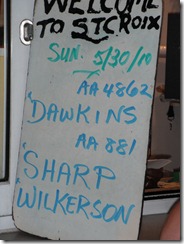 WELCOME
TO ST CROIX
SUN. 5/30/10
AA 4862
'DAWKINS
AA 881
'SHARP
'WILKERSON